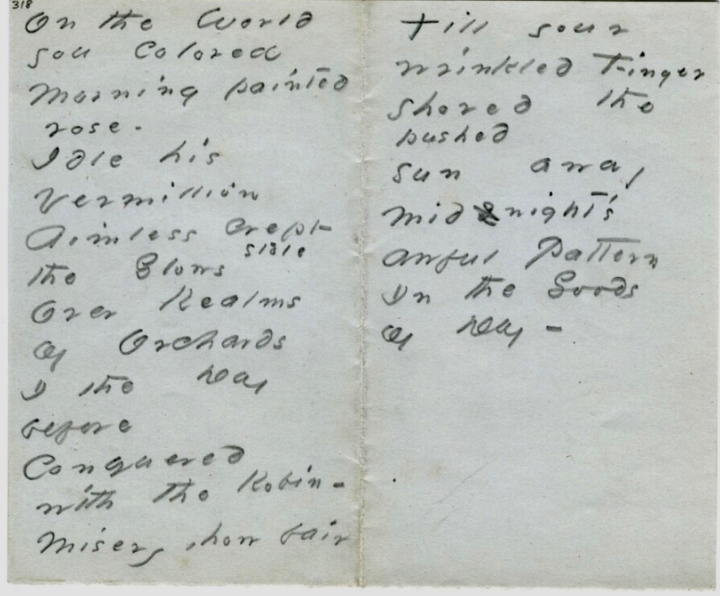 318
On the World
you colored
Morning painted
rose -
Idle his
Vermillion
Aimless crept
stole
the Glows
Over Realms
of Orchards
I the Day
before
Conquered
with the Robin -
Misery, how fair
Till your
wrinkled Finger
shoved the
pushed
sun away
Midnight's
awful Pattern
In the Goods
of Day -